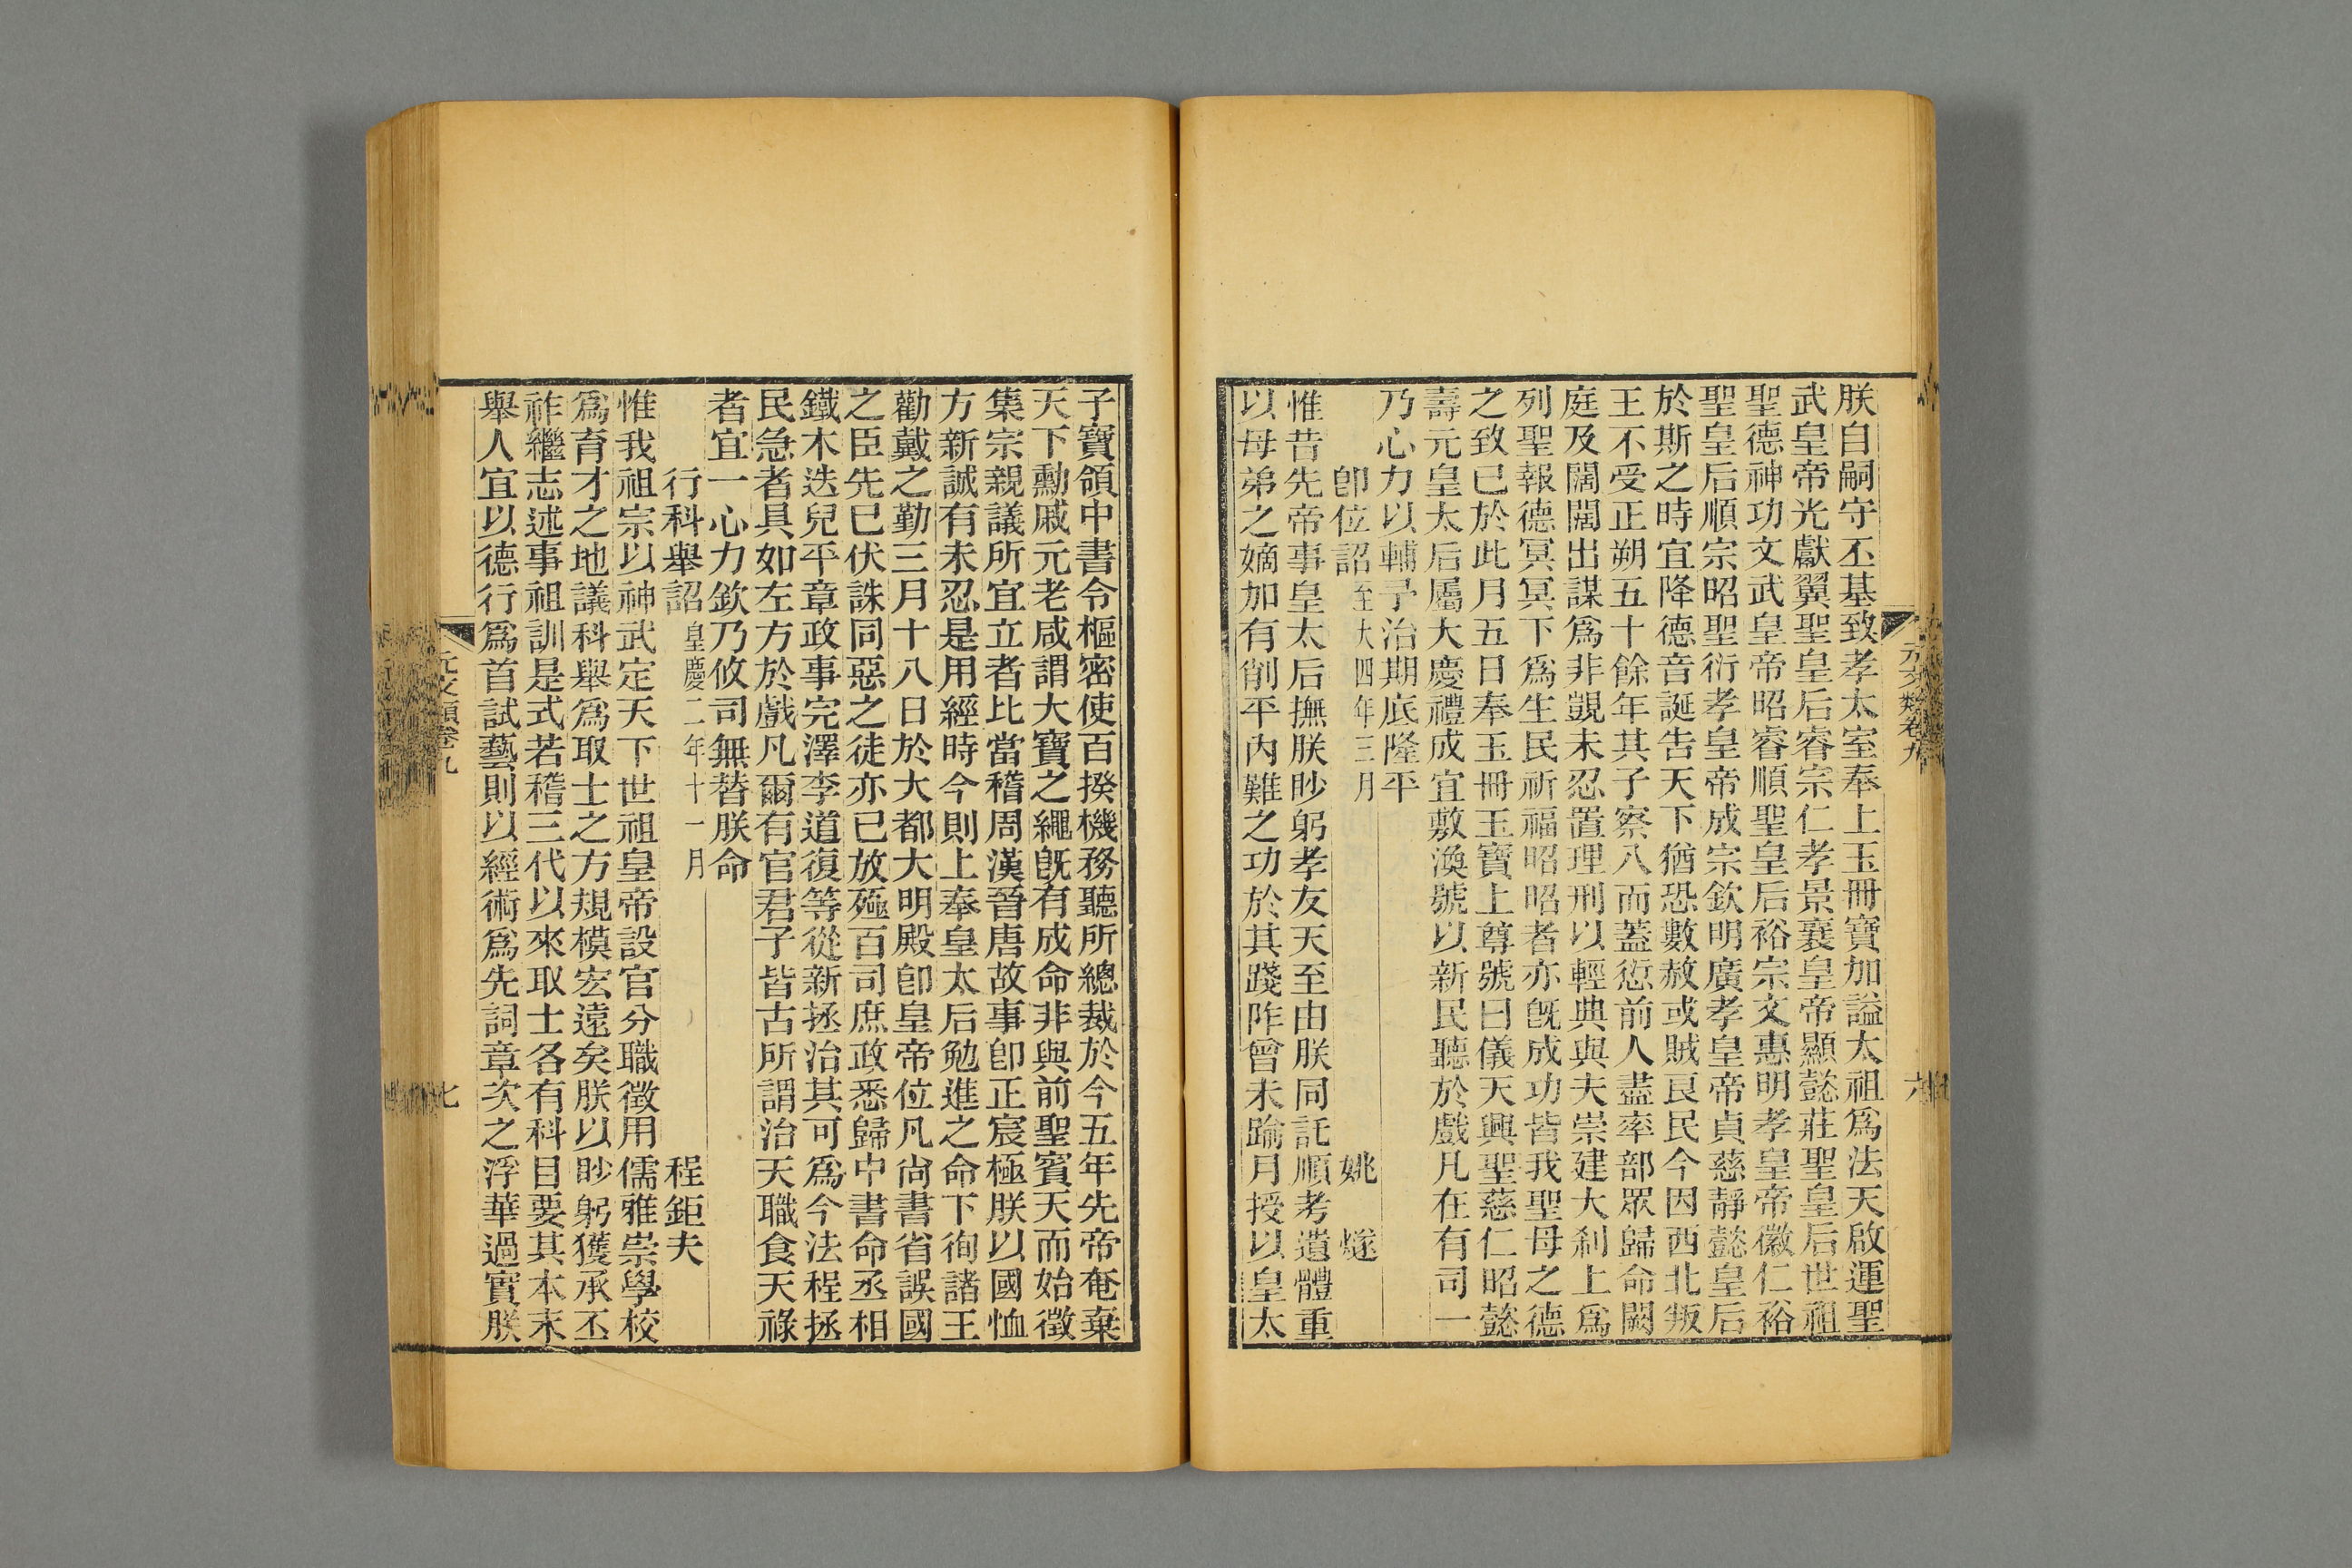 朕自嗣守丕基致孝太室奉上玉冊寶加謚太祖爲法天啟運聖
武皇帝光獻翼聖皇后睿宗仁孝景襄皇帝顯懿莊聖皇后世祖
聖德神功文武皇帝昭睿順聖皇后裕宗文惠明孝皇帝徽仁裕
聖皇后順宗昭聖衍孝皇帝成宗欽明廣孝皇帝貞慈靜懿皇后
於斯之時宜降德音誕告天下猶恐數赦或賊良民今因西北叛
王不受正朔五十餘年其子察八而蓋愆前人盡率部眾歸命闕
庭及闊闊出謀爲非覬未忍置理刑以輕典與夫崇建大刹上爲
列聖報德冥冥下爲生民祈福昭昭者亦旣成功皆我聖母之德
之致已於此月五日奉玉冊玉寶上尊號曰儀天興聖慈仁昭懿
壽元皇太后屬大慶禮成宜敷渙號以新民聽於戲凡在有司一
乃心力以輔予治期底隆平
卽位詔至大四年三月 姚燧
惟昔先帝事皇太后撫朕眇躬孝友天至由朕同託順考遺體重
以母弟之嫡加有削平內難之功於其踐阼曾未踰月授以皇太
元文類卷九 六
子寶領中書令樞密使百揆機務聽所總裁於今五年先帝奄棄
天下勳戚元老咸謂大寶之繩旣有成命非與前聖賓天而始徵
集宗親議所宜立者比當稽周漢晉唐故事卽正宸極朕以國恤
方新誠有未忍是用經時今則上奉皇太后勉進之命下徇諸王
勸戴之勤三月十八日於大都大明殿卽皇帝位凡尙書省誤國
之臣先已伏誅同惡之徒亦已放殛百司庶政悉歸中書命丞相
鐵木迭兒平章政事完澤李道復等從新拯治其可爲今法程拯
民急者具如左方於戲凡爾有官君子皆古所謂治天職食天祿
者宜一心力欽乃攸司無替朕命
行科舉詔皇慶二年十一月 程鉅夫
惟我祖宗以神武定天下世祖皇帝設官分職徵用儒雅崇學校
爲育才之地議科舉爲取士之方規模宏遠矣朕以眇躬獲承丕
祚繼志述事祖訓是式若稽三代以來取士各有科目要其本末
舉人宜以德行爲首試藝則以經術爲先詞章次之浮華過實朕
元文類卷九 七